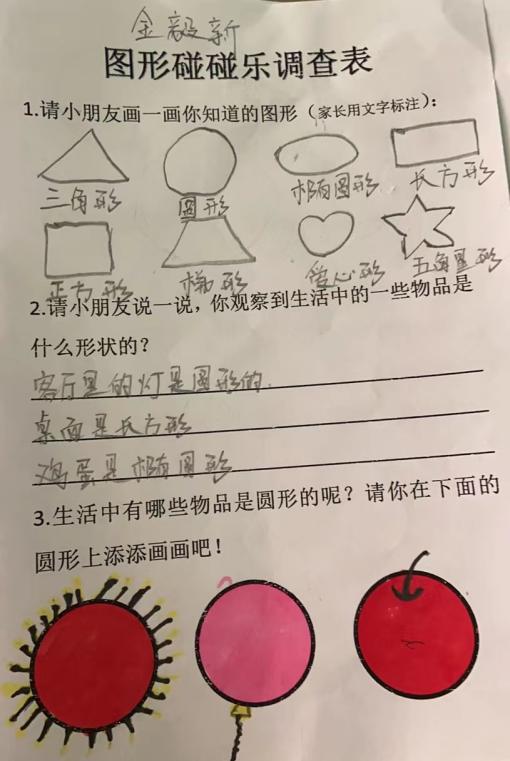 金毅新
图形碰碰乐调查表
1.请小朋友画一画你知道的图形（家长用文字标注）：
三角形 圆形 椭圆形 长方形
正方形 梯形 爱心形 五角星形
2.请小朋友说一说，你观察到生活中的一些物品是
什么形状的？
客厅里的灯是圆形的.
桌面是长方形
鸡蛋是椭圆形
3.生活中有哪些物品是圆形的呢？请你在下面的
圆形上添添画画吧！